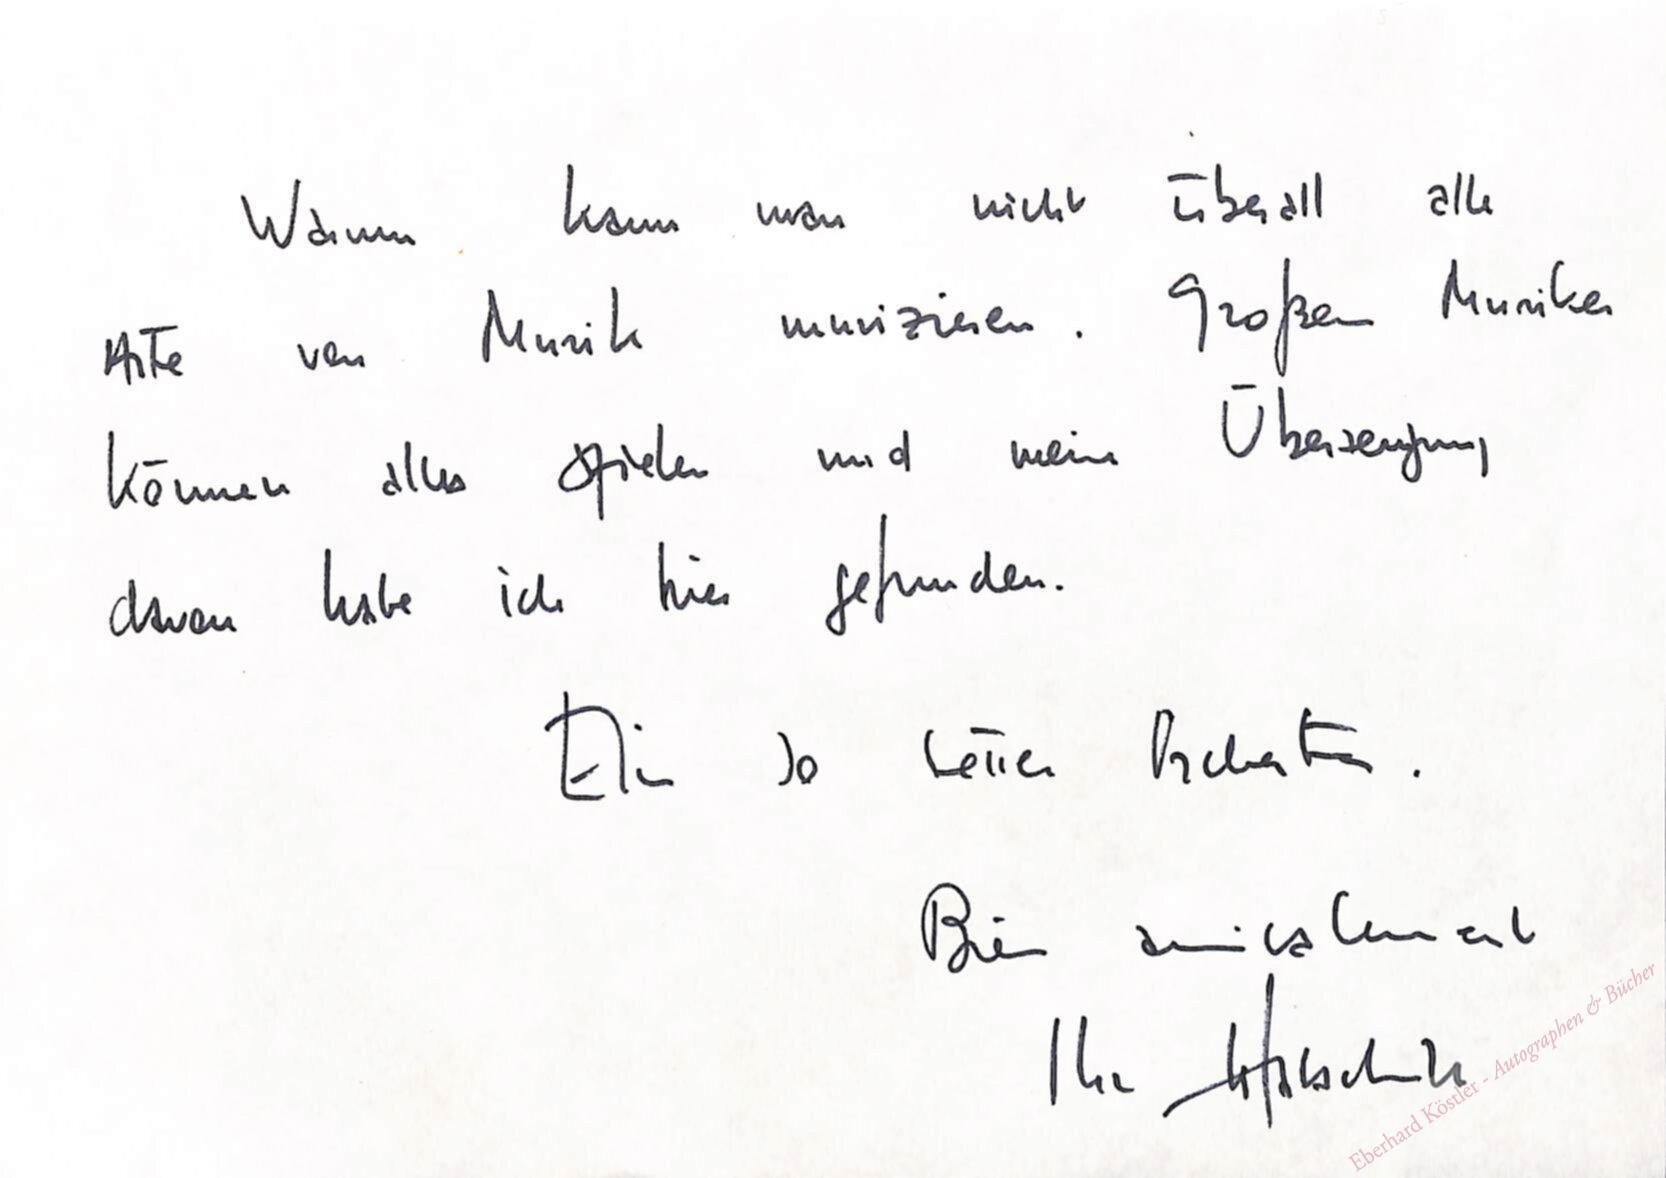 Warum kann man nicht überall alle
Arte von Musik musizieren. Großen Musiker
können alles spielen und meine Überzeugung
davon habe ich hier gefunden.
Ein so netter Orchester.
Bien amicalement
Ihr
Eberhard Köstler - Autographen & Bücher